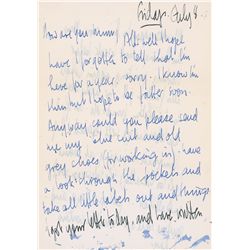 Friday. July 8
How are you mum? All well I hope
have I forgotten to tell that I'm
here for a year. sorry. I know I'm
thin but hope to be fatter soon.
Anyway could you please send
me my blue suit and old
grey shoes (for working in) have
a look through the pockets and
take all little labels out and things
I got your letter today, and have written